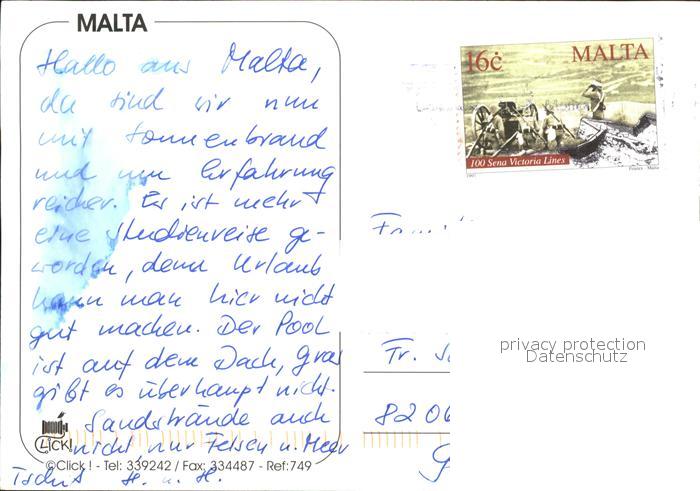 MALTA
Hallo aus Malta,
da sind wir nun
mit Sonnenbrand
und um Erfahrung
reicher. Es ist mehr
eine Studienreise ge-
worden, denn Urlaub
kann man hier nicht
gut machen. Der Pool
ist auf dem Dach, Gras
gibt es überhaupt nicht.
Sandstrände auch
nicht, nur Felsen u. Meer
CLICK!
©Click ! - Tel: 339242 / Fax: 334487 - Ref:749
H. u. H.
16c
MALTA
100 Sena Victoria Lines
1997
Printex - Malta
privacy protection
Datenschutz
Fr.
8206